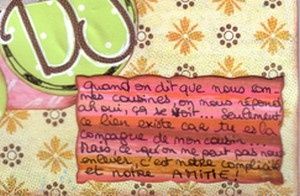 DJ
Quand on dit que nous som-
mes cousines, on nous répond
ah oui, ça se voit... Seulement
ce lien existe car tu es la
compagne de mon cousin.
Mais, ce qu'on ne peut pas nous
enlever, c'est notre complicité
et notre AMITIÉ !